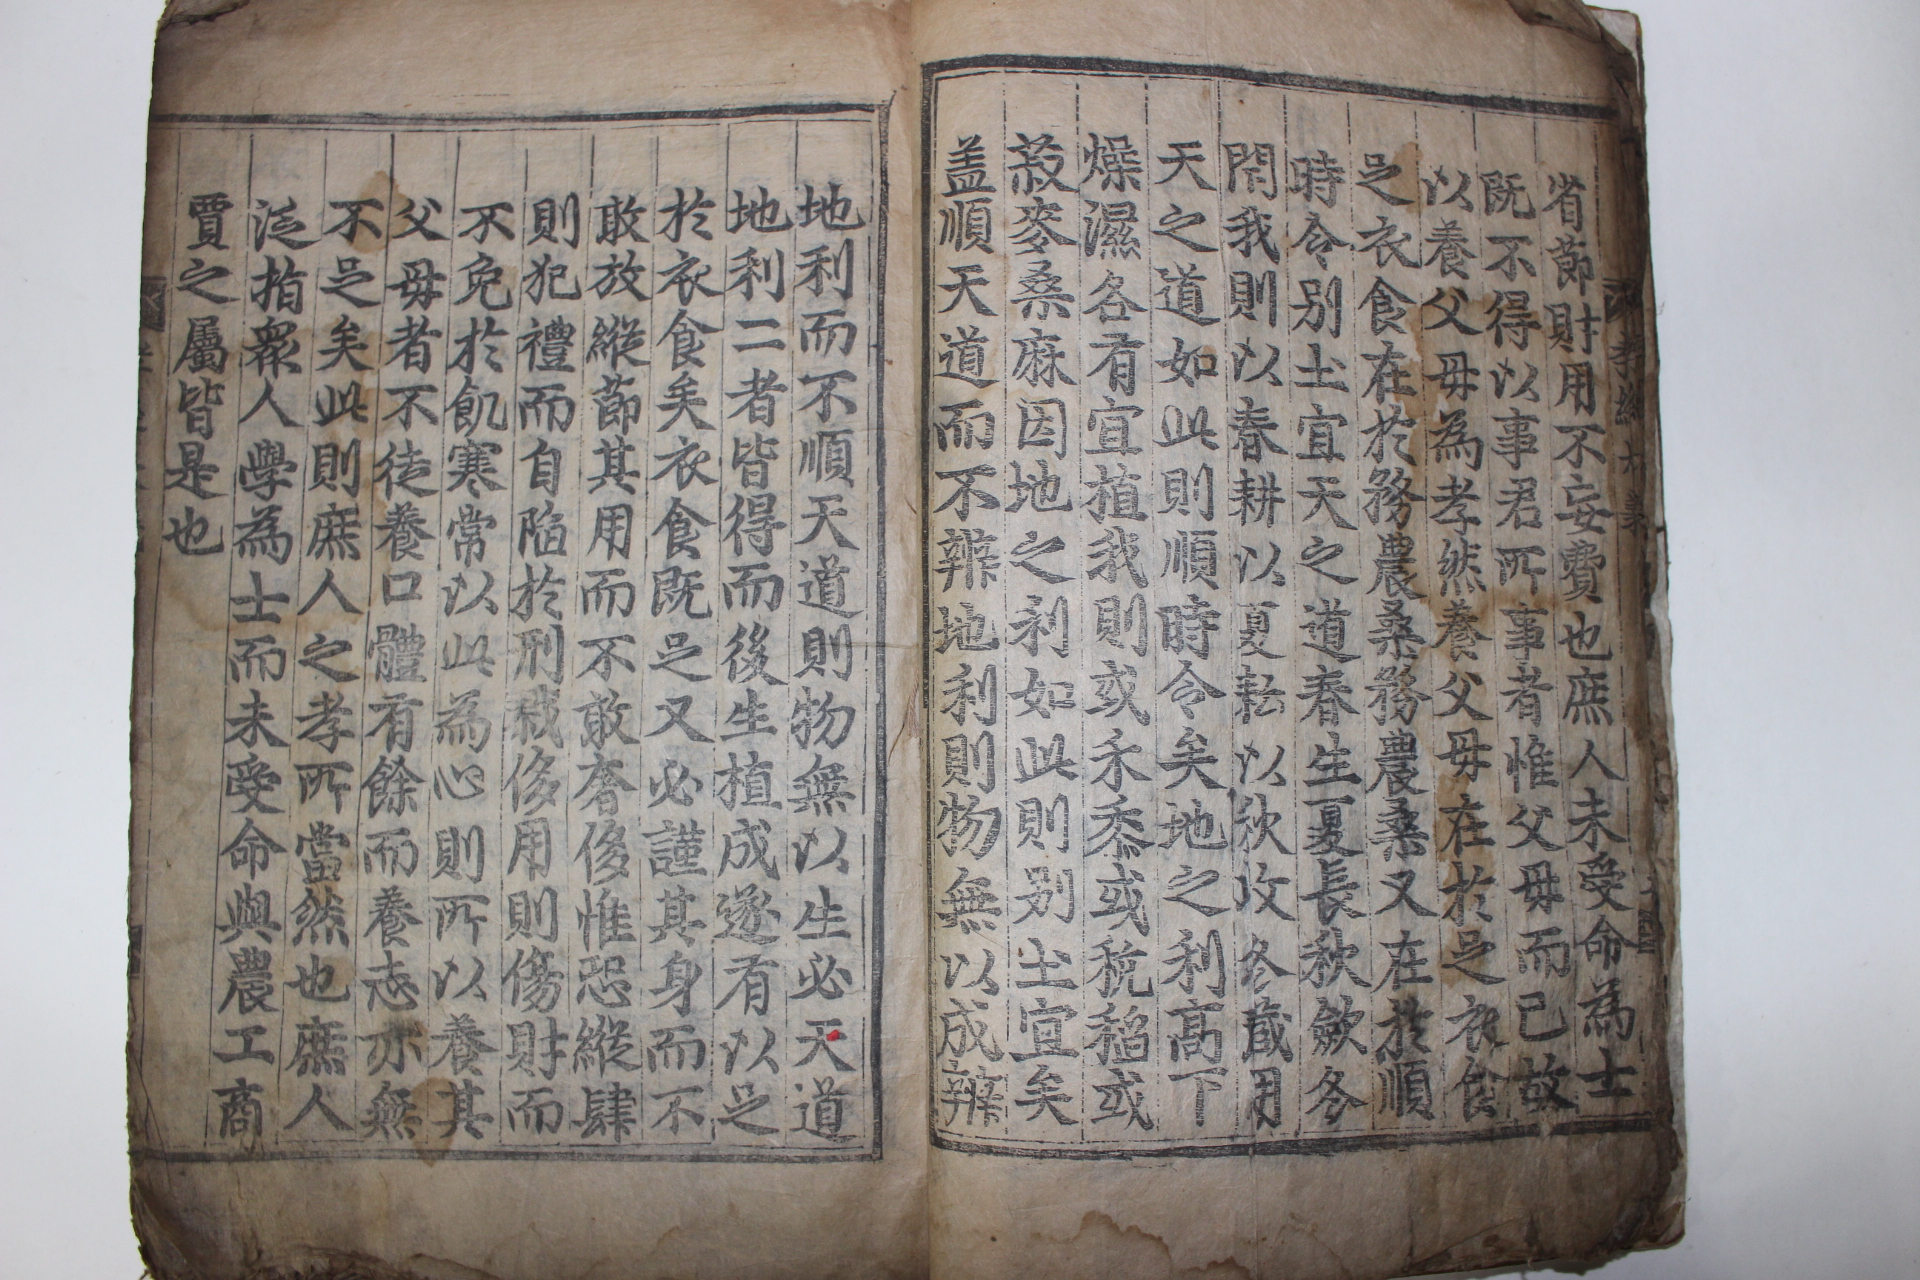 省節財用不妄費也庶人未受命為士
既不得以事君所事者惟父母而已故
以養父母為孝然養父母在於足衣食
足衣食在於務農桑務農桑又在於順
時令别土宜天之道春生夏長秋斂冬
閉我則以春耕以夏耘以秋收冬藏用
天之道如此則順時令矣地之利高下
燥濕各有宜植我則或禾黍或稅稻或
菽麥桑麻因地之利如此則别土宜矣
盖順天道而不辨地利則物無以成辨
地利而不順天道則物無以生必天道
地利二者皆得而後生植成遂有以足
於衣食矣衣食既足又必謹其身而不
敢放縱節其用而不敢奢侈惟恐縱肆
則犯禮而自陷於刑戮侈用則傷財而
不免於飢寒常以此為心則所以養其
父母者不徒養口體有餘而養志亦無
不足矣此則庶人之孝所當然也庶人
泛指衆人學為士而未受命與農工商
賈之屬皆是也